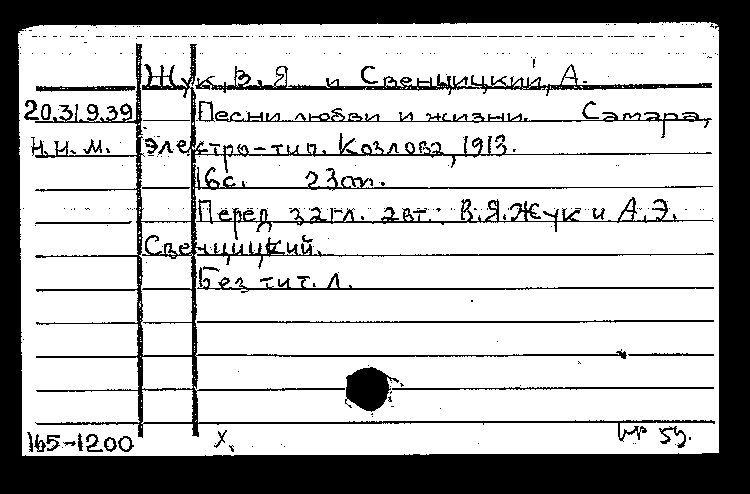 Жук, В. Я и Свенцицкий, А.
20.31.9.39 Песни любви и жизни. Самара,
н.н.м. Электро-тип. Козлова, 1913.
16с. 23см.
Перед загл. авт.: В.Я.Жук и А.Э.
Свенцицкий.
Без тит. л.
165-1200 х.